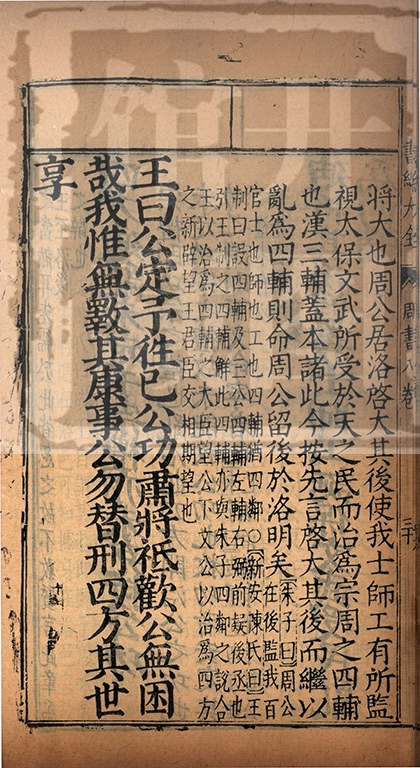 書經大全 周書八卷
將大也周公居洛啓大其後使我士師工有所監
視大保文武所受於天之民而治爲宗周之四輔
也漢三輔蓋本諸此今按先言啓大其後而繼以
亂爲四輔則命周公留後於洛明矣
朱子曰周公
在後監我百
官士也師也工也四輔猶四鄰○新安陳氏曰王
制曰設四輔及三公四輔左輔右弼前疑後丞也
引王制之四輔解此四輔亦與朱子四鄰之說合
王以治爲四輔之大臣望公下文公以治爲四方
之新辟望王君臣交相期望也
王曰公定予徃已公功肅將祗歡公無困
哉我惟無斁其康事公勿替刑四方其世
享